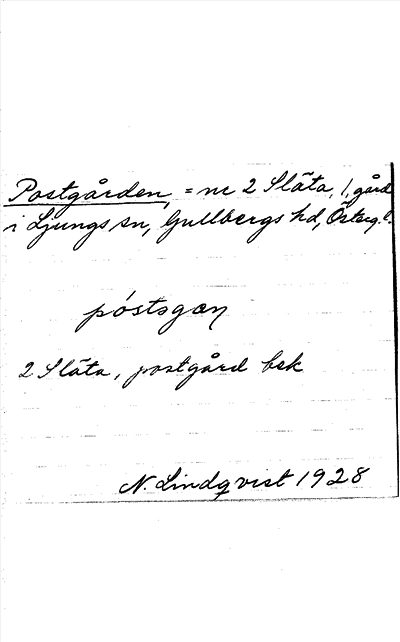 Postgården, = nr 2 Släta, 1, gård
i Ljungs sn, Gullbergs hd, Österg. l.
póstsgæn
2 Släta, postgård bek
N. Lindqvist 1928